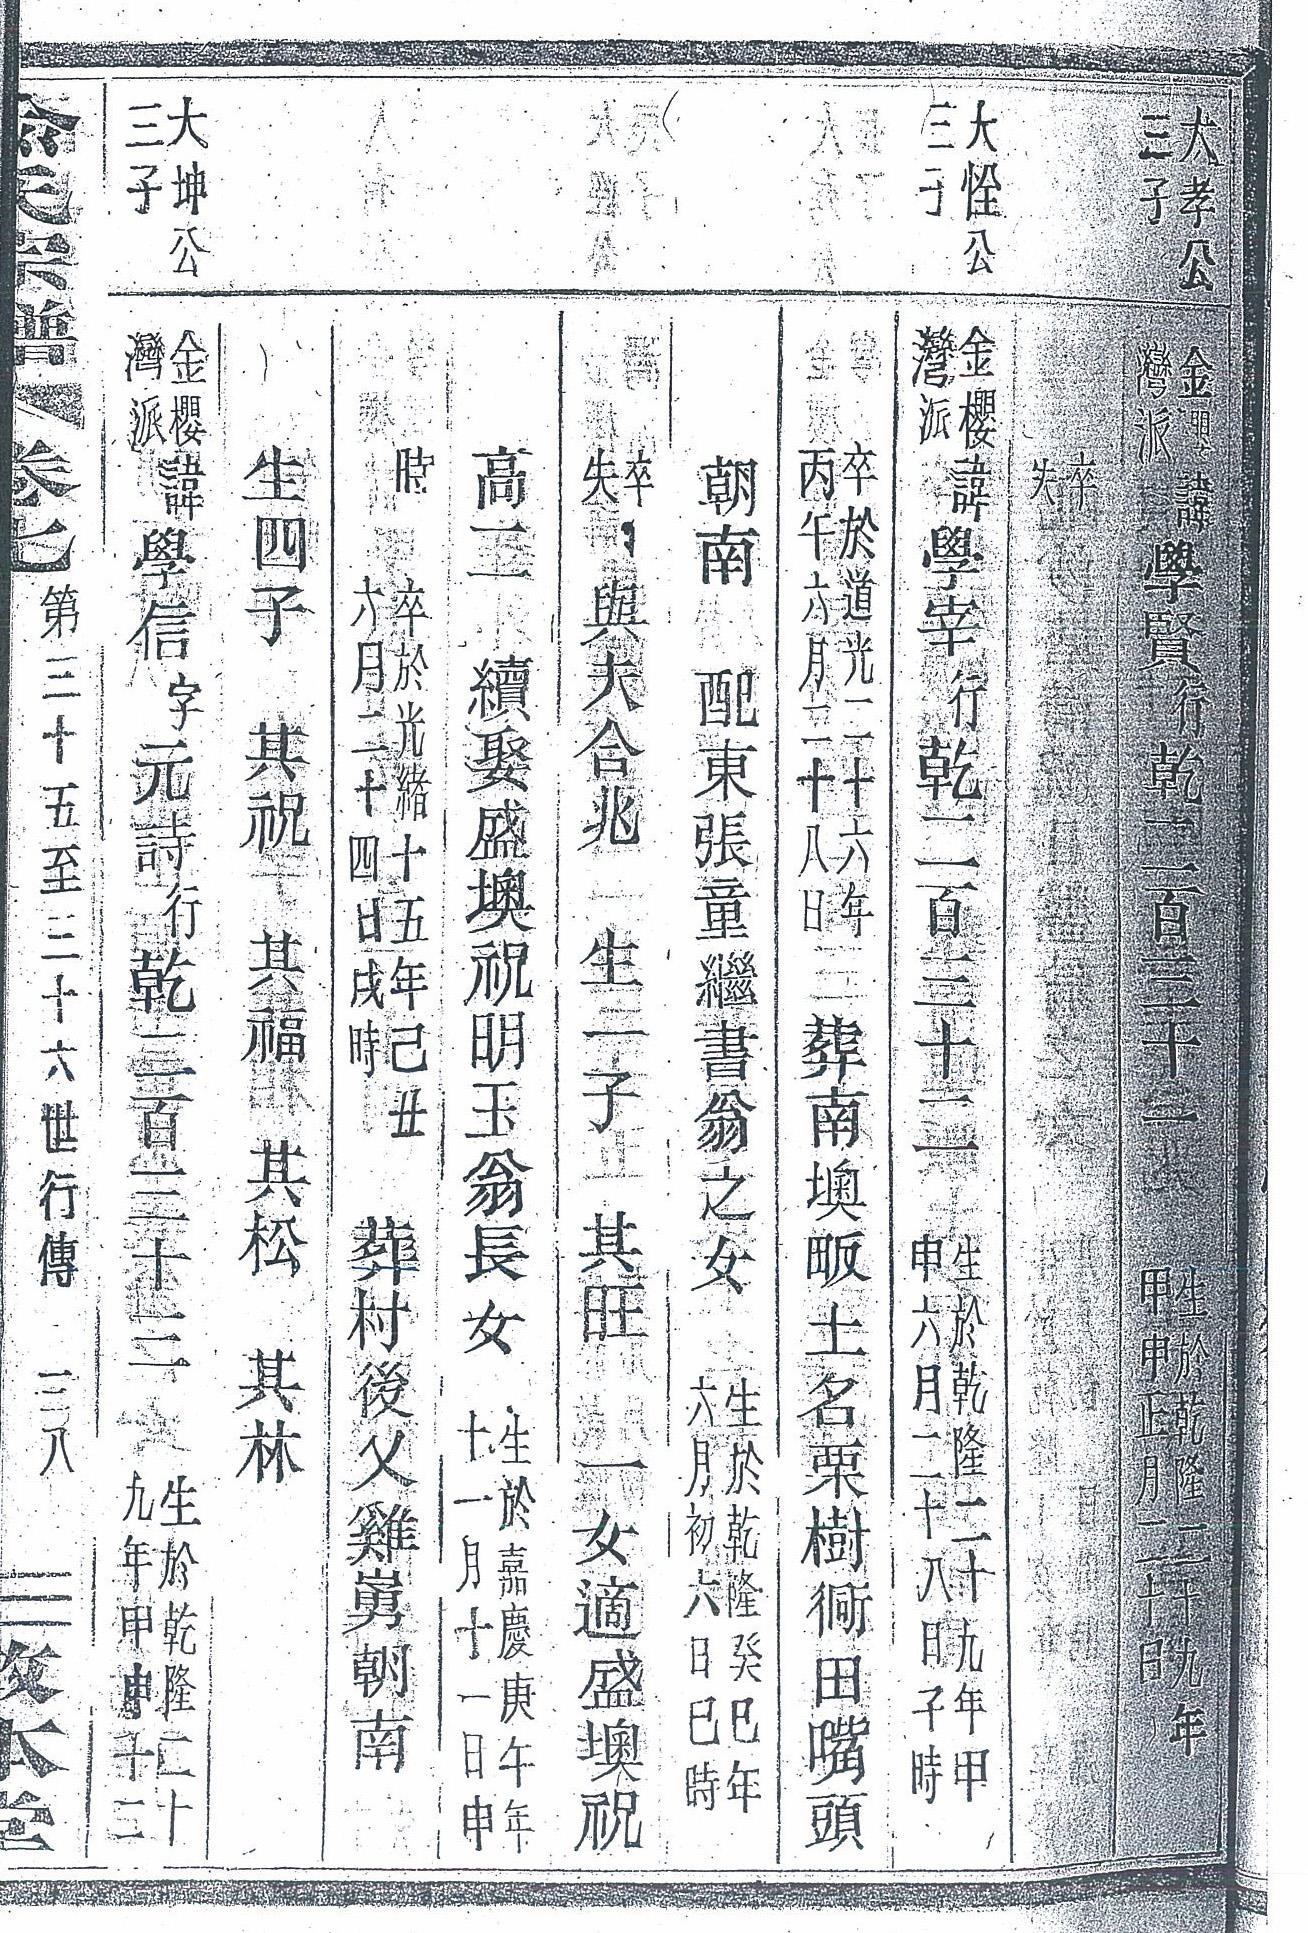 大孝公
三子
金櫻
灣派
諱學賢行乾二百三十一
生於乾隆二十九年
甲申正月二十日
卒
失
大恮公
三子
金櫻
灣派
諱學宰行乾二百三十二
生於乾隆二十九年甲
申六月二十八日子時
卒於道光二十六年
丙午六月二十八日
葬南墺畈土名栗樹衕田嘴頭
朝南
配東張童繼書翁之女
生於乾隆癸巳年
六月初六日巳時
卒
失
與夫合兆
生一子
其旺
一女適盛墺祝
高二
續娶盛墺祝明玉翁長女
生於嘉慶庚午年
十一月十一日申
時
卒於光緒十五年己丑
六月二十四日戌時
葬村後乂雞嶴朝南
生四子
其祝
其福
其松
其林
大坤公
三子
金櫻
灣派
諱學信字元詩行乾二百三十三
生於乾隆二十
九年甲申十二
俞氏宗譜
卷七
第三十五至三十六世行傳
三八
敦本堂